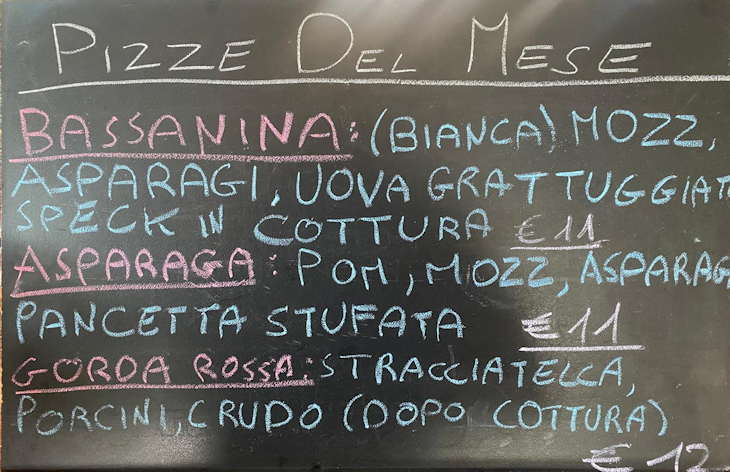 PIZZE DEL MESE
BASSANINA: (BIANCA) MOZZ,
ASPARAGI, UOVA GRATTUGGIAT
SPECK IN COTTURA €11
ASPARAGA: POM, MOZZ, ASPARAG
PANCETTA STUFATA €11
GORDA ROSSA: STRACCIATELLA,
PORCINI, CRUDO (DOPO COTTURA)
€ 12